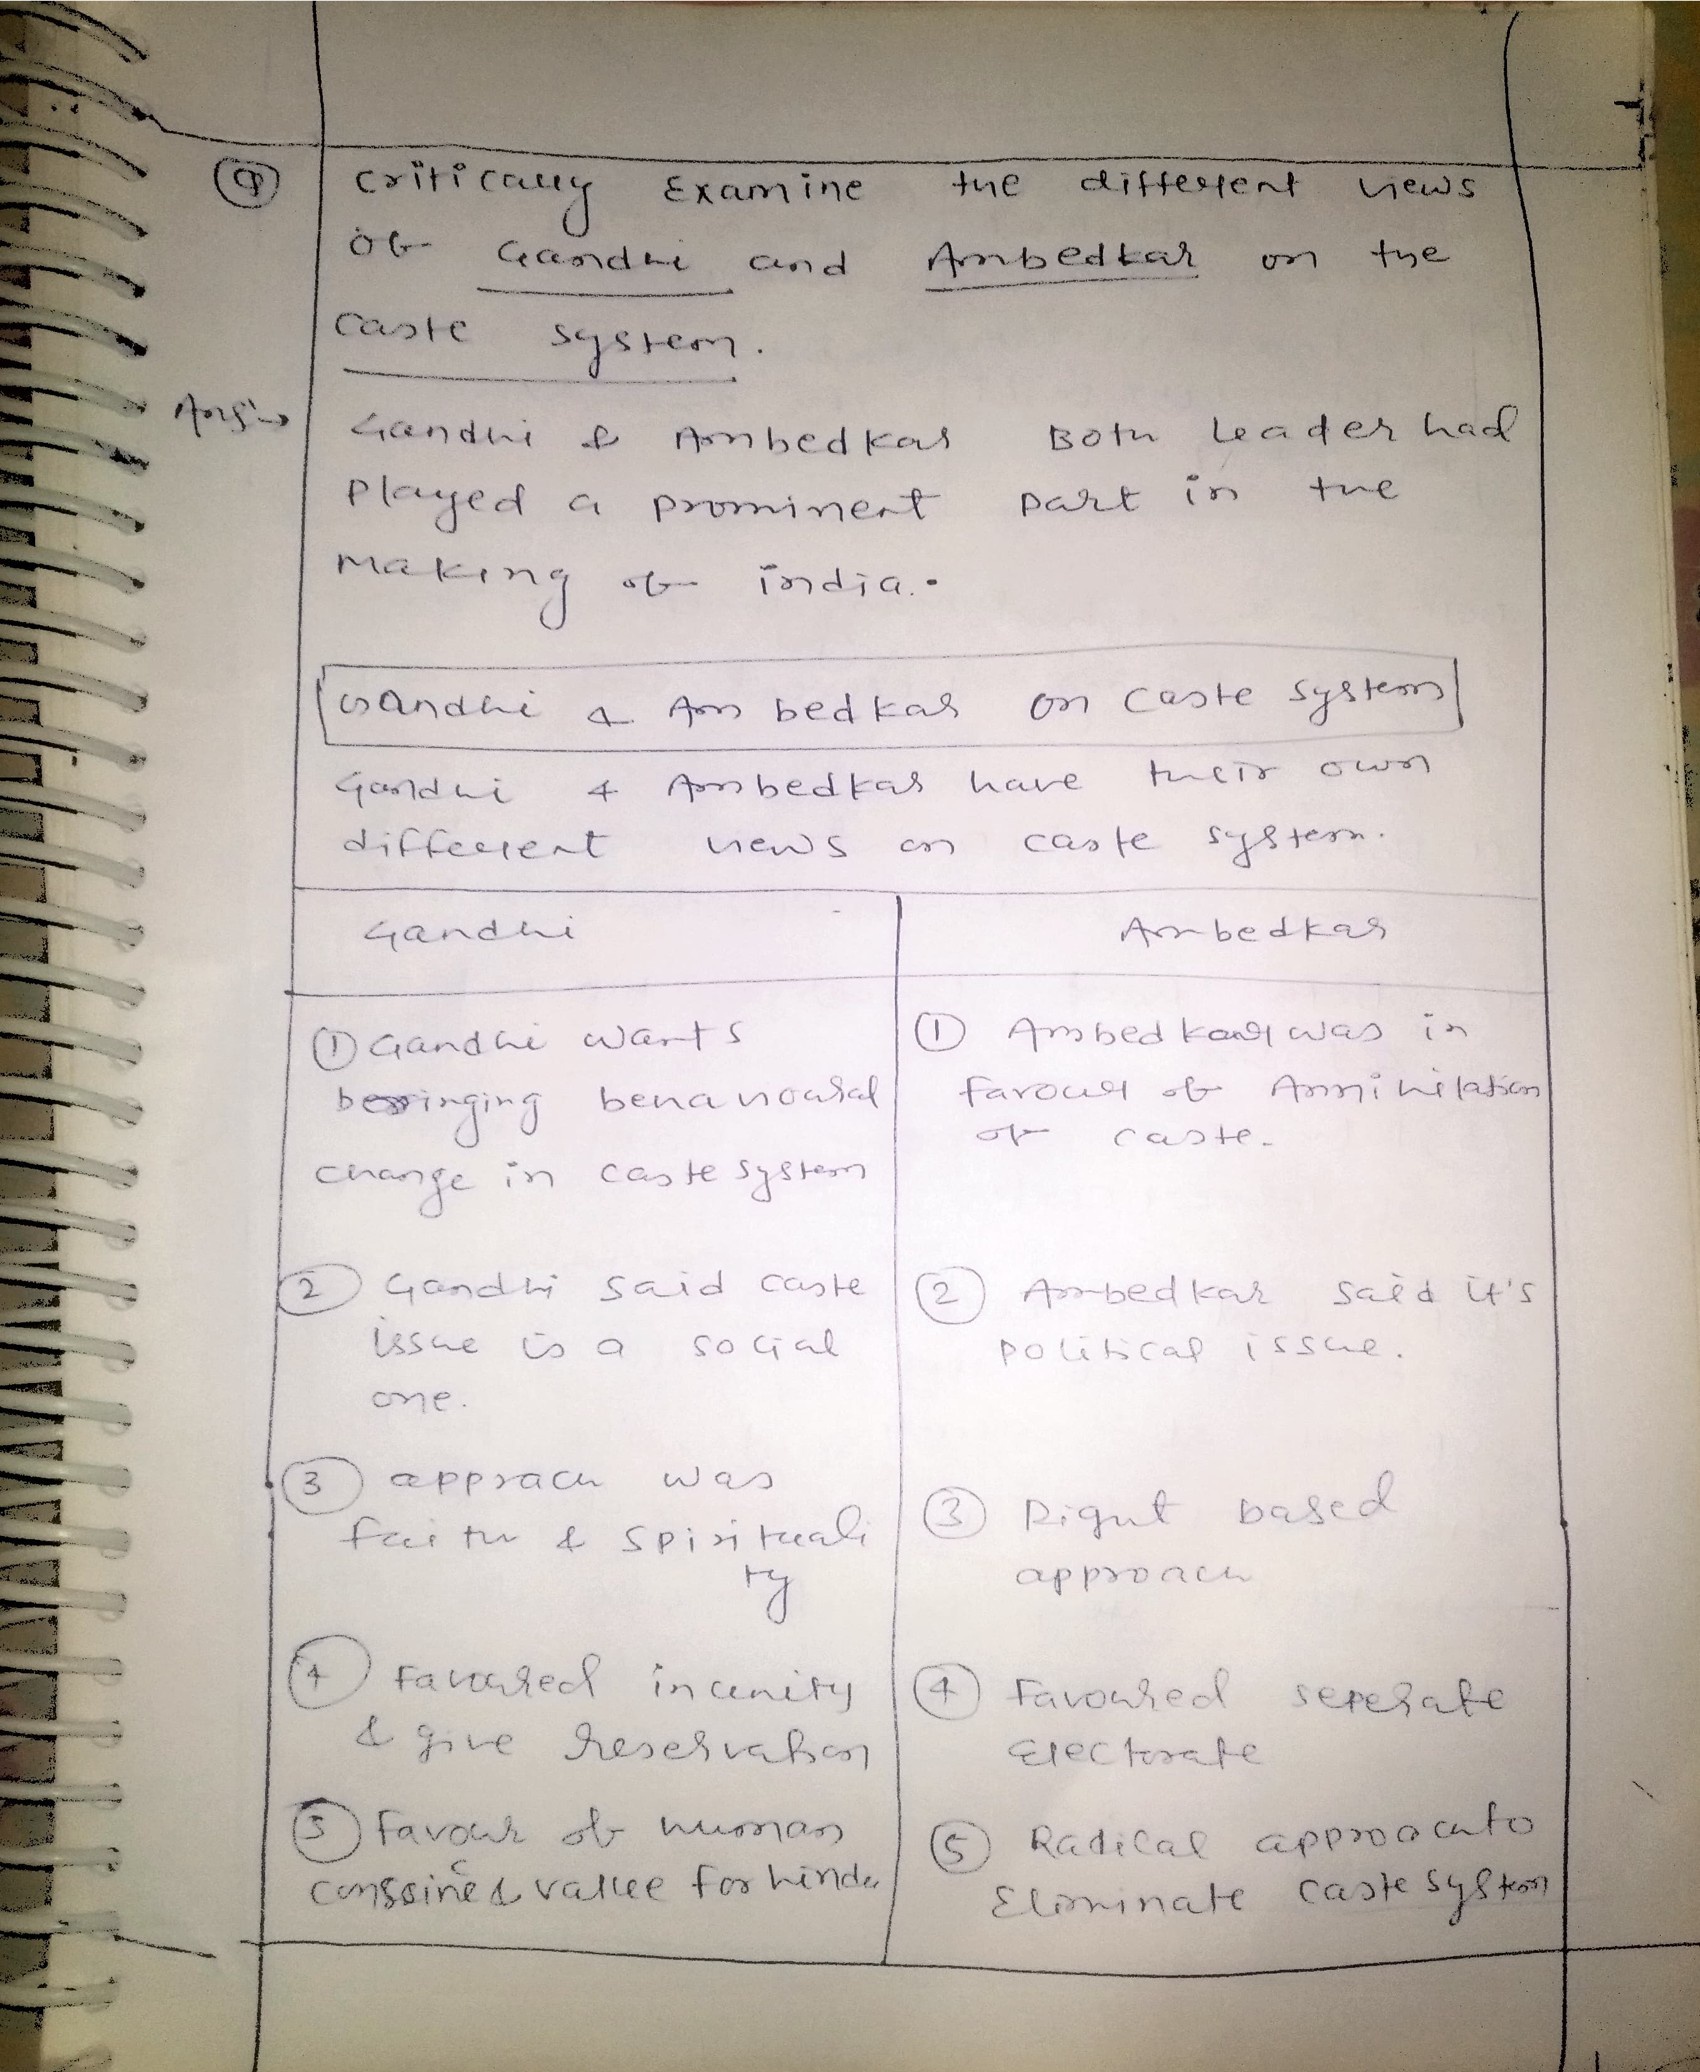 Q Critically Examine the different views
of Gandhi and Ambedkar on the
caste system.
Ans→ Gandhi & Ambedkar Both Leader had
Played a prominent part in the
Making of india.
Gandhi & Ambedkar on Caste system
Gandhi & Ambedkar have their own
different views on caste system.
Gandhi
① Gandhi wants
bringing behavioural
change in caste system
② Gandhi said caste
issue is a social
one.
③ apprach was
faith & spirituali
ty
④ Favoured in unity
& give reservation
⑤ favour of human
value for hindu
Ambedkar
① Ambedkar was in
favour of Annihilation
of caste.
② Ambedkar said it's
political issue.
③ Right based
approach
④ Favoured seperate
Electorate
⑤ Radical approach to
Eliminate caste system